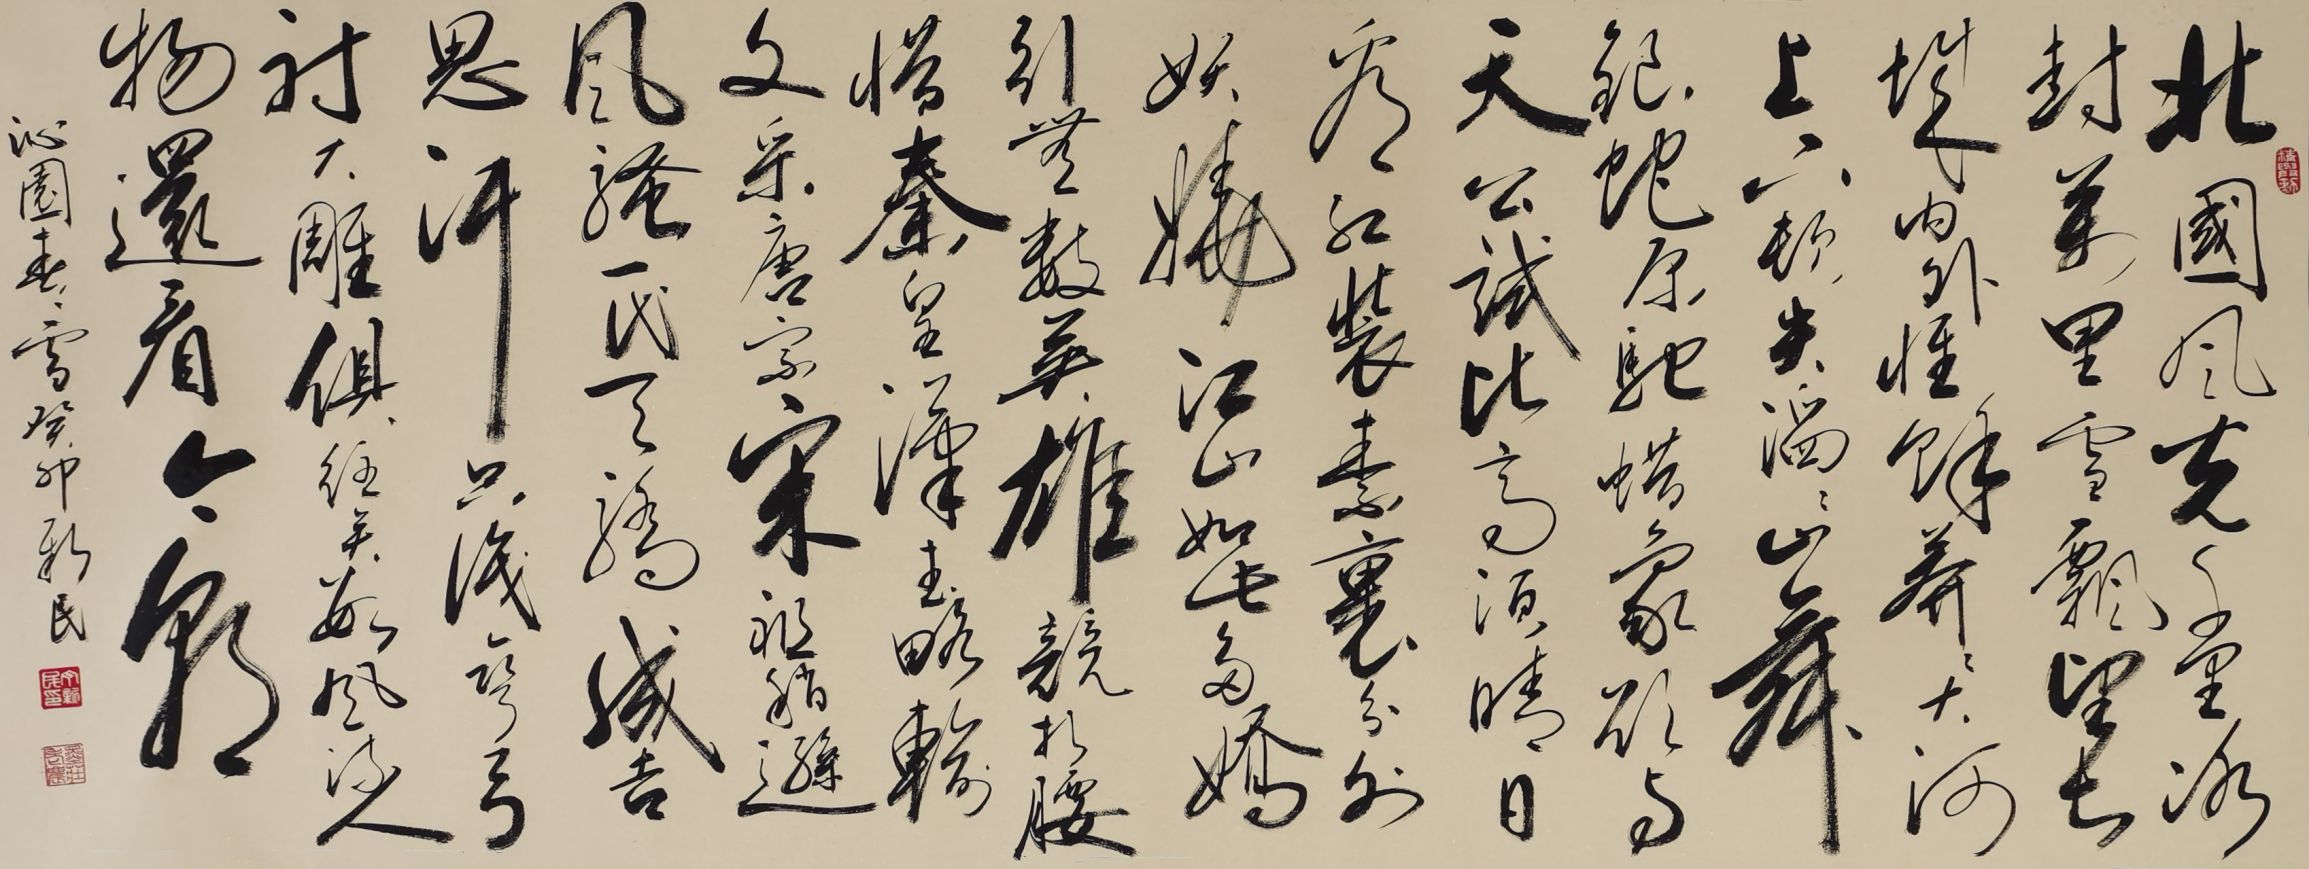 北國風光千里冰
封萬里雪飄望長
城內外惟餘莽莽大河
上下頓失滔滔山舞
銀蛇原馳蜡象欲与
天公試比高須晴日
看紅裝素裹分外
妖嬈江山如此多嬌
引無數英雄競折腰
惜秦皇漢武略輸
文采唐宗宋祖稍遜
風騷一代天驕成吉
思汗只識彎弓
射大雕俱往矣數風流人
物還看今朝
沁園春雪癸卯新民